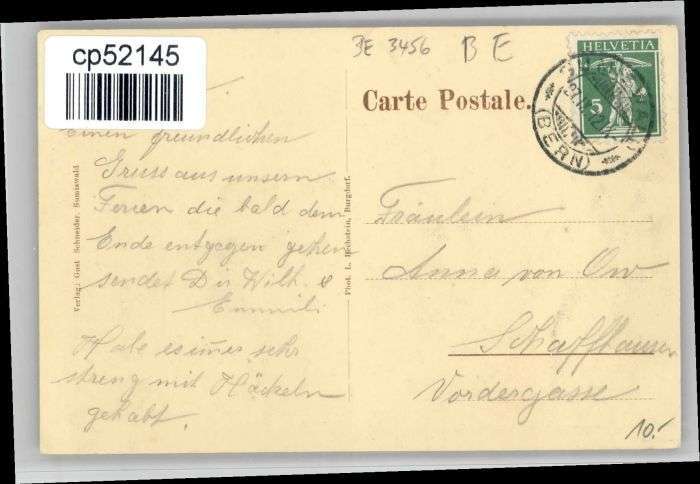 cp52145
BE 3456 B E
HELVETIA
5
(BERN)
Carte Postale.
Einen freundlichen
Gruss aus unsern
Ferien die bald dem
Ende entgegen gehen
sendet Dir Wilh. &
Emmili
Habe es immer sehr
streng mit Häckeln
gehabt.
Verlag: Gust. Schneider, Sumiswald
Phot. L. Bechstein, Burgdorf.
Fräulein
Anna von Ow
Schaffhausen
Vordergasse
10.-